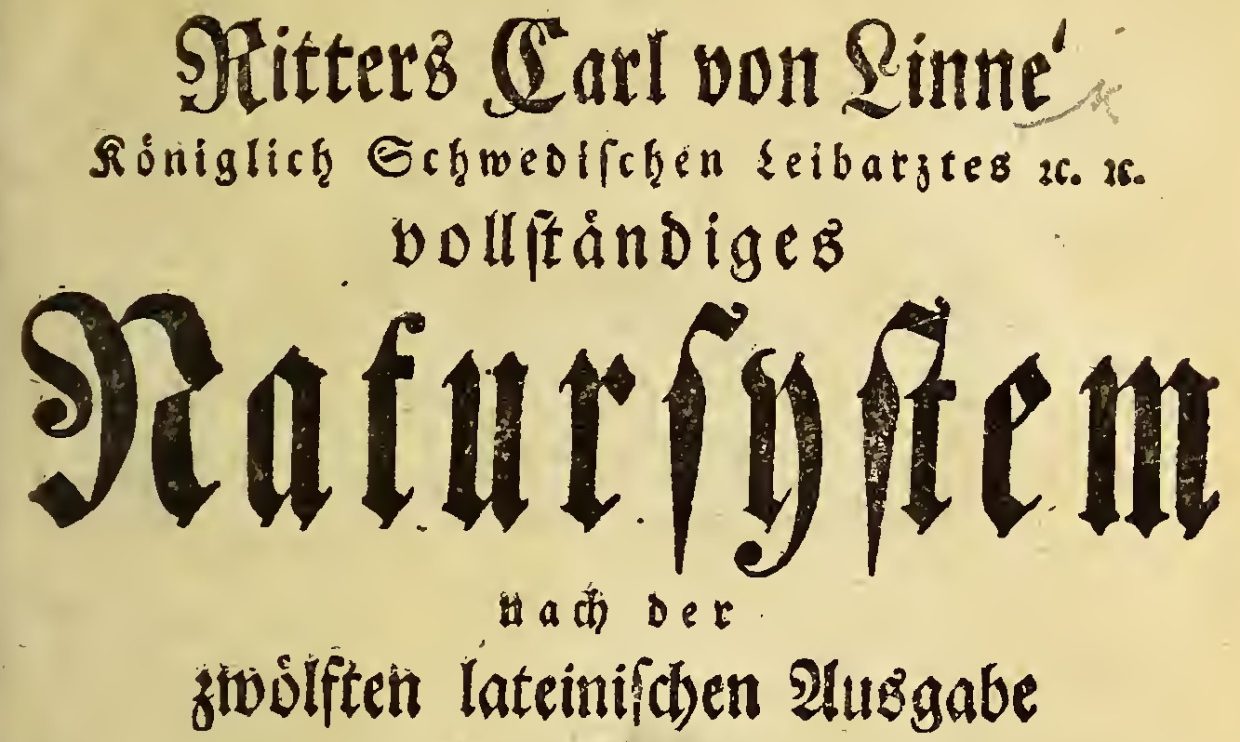 Ritters Carl von Linne'
Königlich Schwediſchen Leibarztes ꝛc. ꝛc.
vollſtändiges
Naturſyſtem
nach der
zwölften lateiniſchen Ausgabe